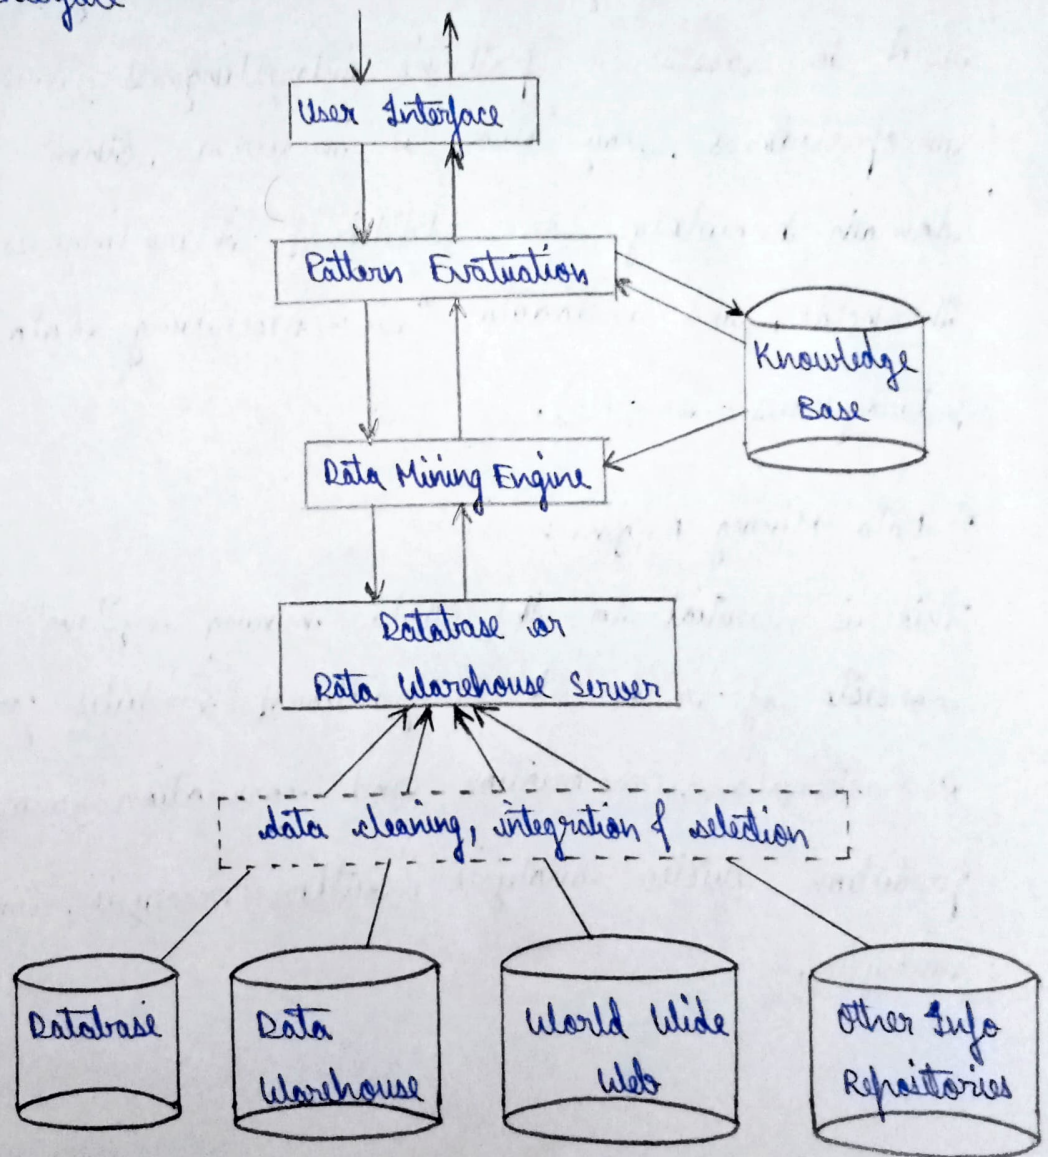 User Interface
Pattern Evaluation
Knowledge
Base
Data Mining Engine
Database or
Data Warehouse Server
data cleaning, integration & selection
Database
Data
Warehouse
World Wide
Web
Other Info
Repositories